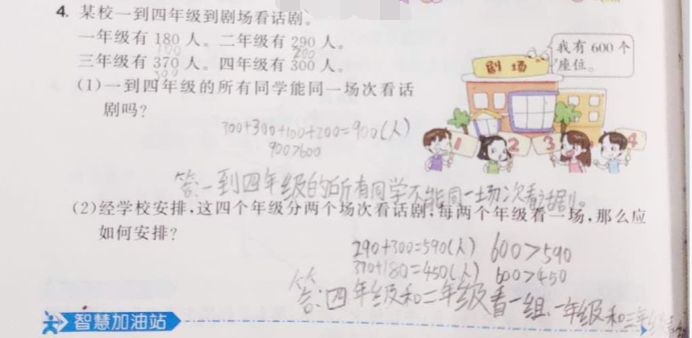 4. 某校一到四年级到剧场看话剧。
一年级有 180 人。二年级有 290 人。
100 200
三年级有 370 人。四年级有 300 人。
300
我有 600 个
座位。
剧场
(1) 一到四年级的所有同学能同一场次看话
剧吗?
1 2 3 4
300+300+100+200=900(人)
900>600
答:一到四年级的所有同学不能同一场次看话剧。
(2) 经学校安排,这四个年级分两个场次看话剧,每两个年级看一场,那么应
如何安排?
290+300=590(人) 600>590
370+180=450(人) 600>450
答:四年级和二年级看一组、一年级和三年级看
智慧加油站